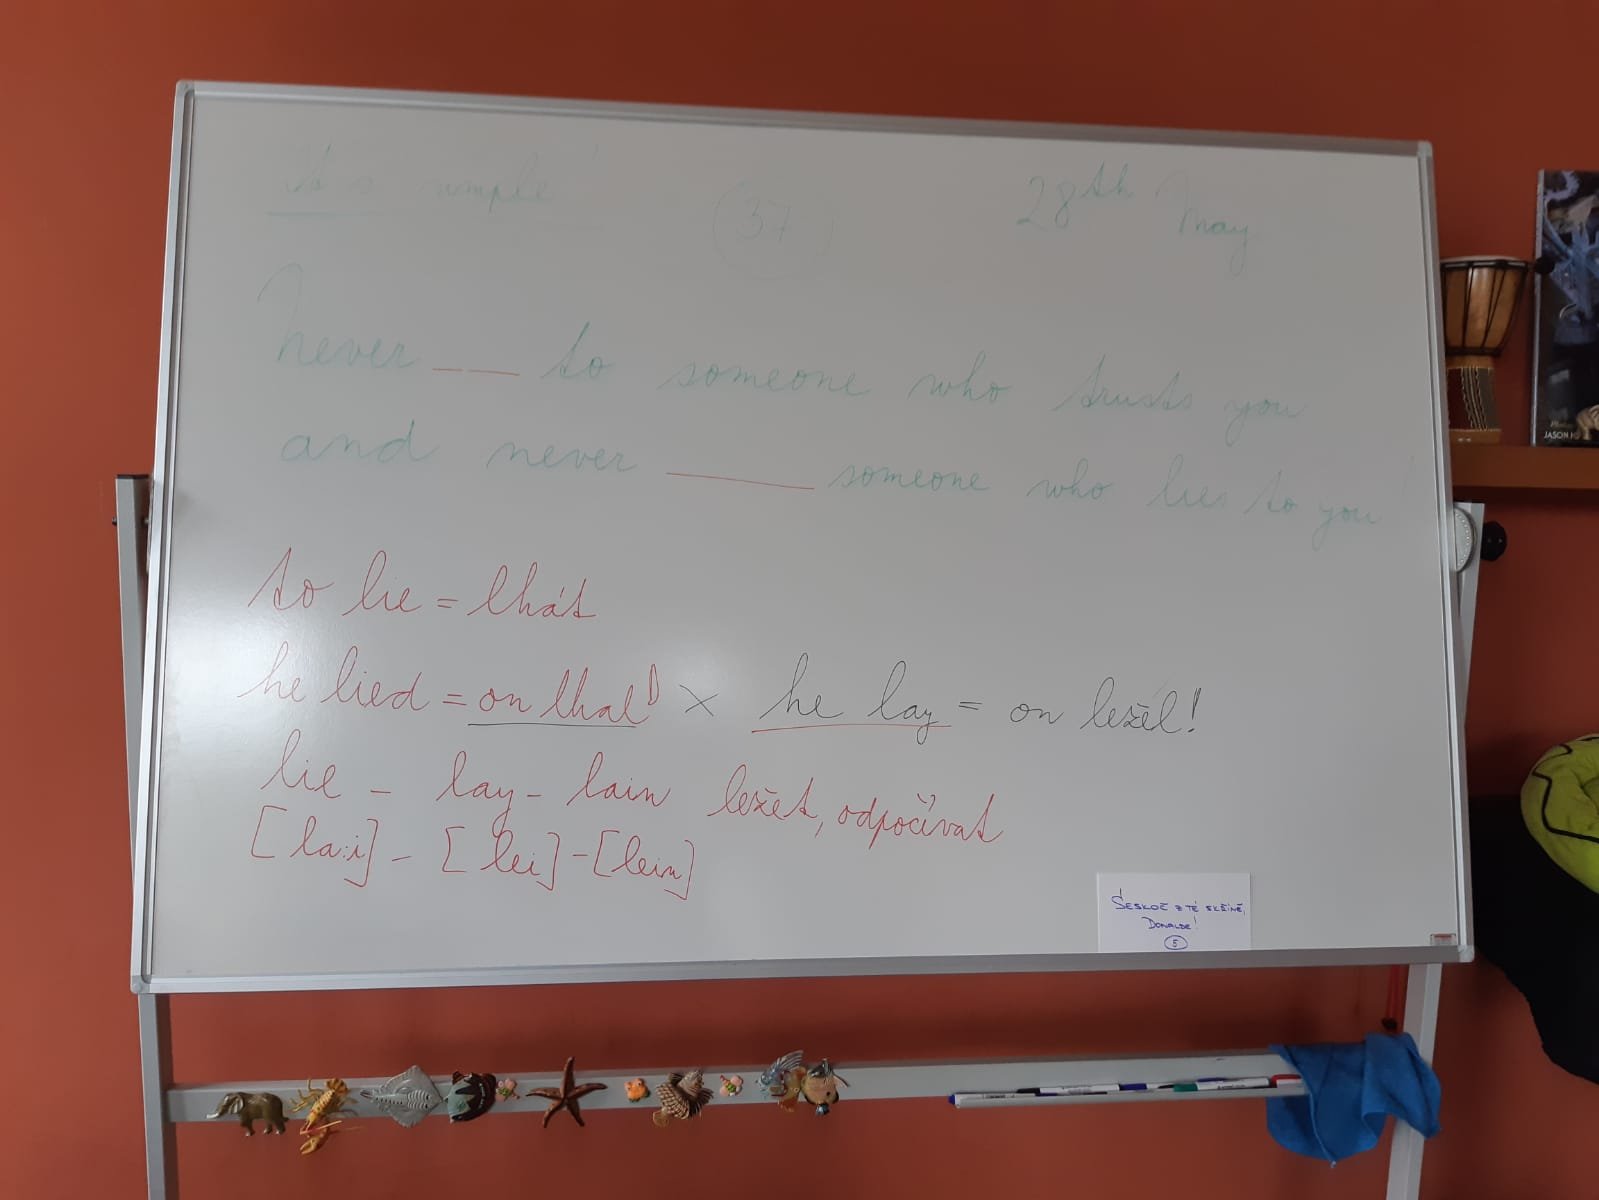 simple!
37
28th May
Never ___ to someone who trusts you
and never ___ someone who lies to you!
to lie = lhát
he lied = on lhal! × he lay = on ležel!
lie - lay - lain ležet, odpočívat
[la:i] - [lei] - [lein]
SESKOČ Z TÉ SKŘÍNĚ,
DONALDE!
5
JASON